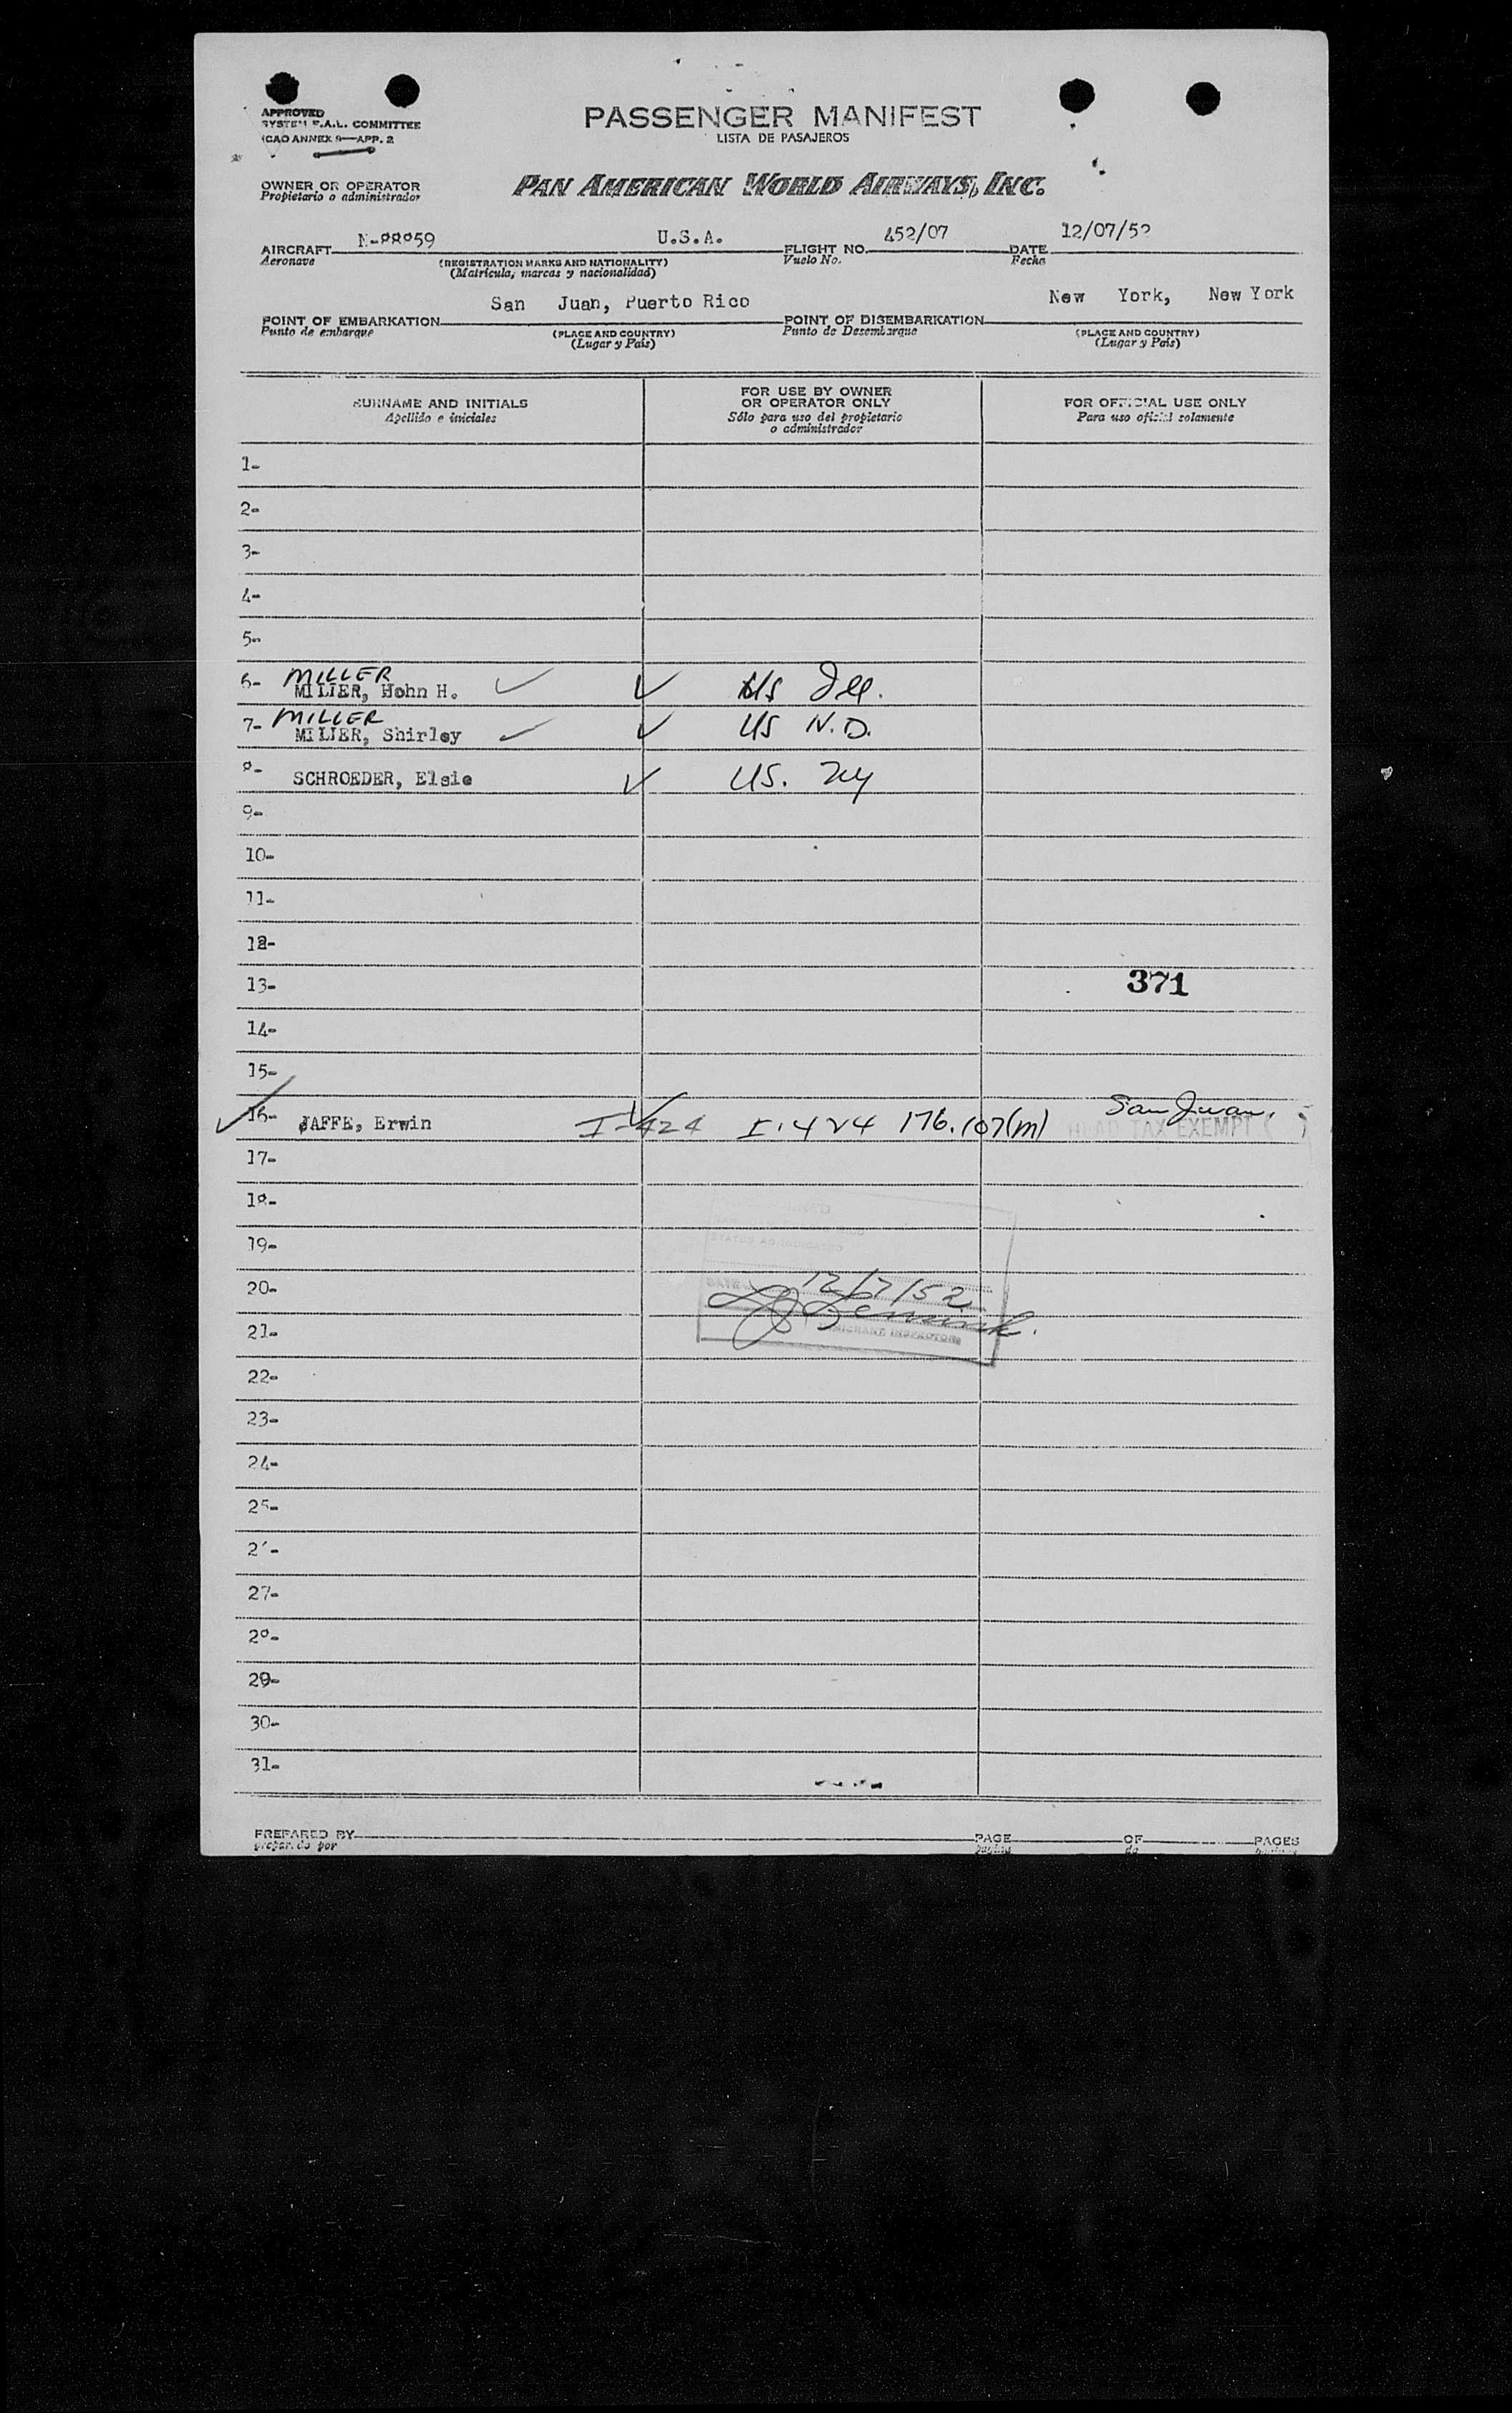 APPROVED
SYSTEM F.A.L. COMMITTEE
ICAO ANNEX 9—APP. 2
PASSENGER MANIFEST
LISTA DE PASAJEROS
OWNER OR OPERATOR
Propietario o administrador
PAN AMERICAN WORLD AIRWAYS, INC.
AIRCRAFT N-88959 U.S.A. FLIGHT NO. 452/07 DATE 12/07/52
Aeronave (REGISTRATION MARKS AND NATIONALITY) Vuelo No. Fecha
(Matrícula, marcas y nacionalidad)
POINT OF EMBARKATION San Juan, Puerto Rico POINT OF DISEMBARKATION New York, New York
Punto de embarque (PLACE AND COUNTRY) Punto de Desembarque (PLACE AND COUNTRY)
(Lugar y País) (Lugar y País)
SURNAME AND INITIALS
Apellido e iniciales
FOR USE BY OWNER
OR OPERATOR ONLY
Sólo para uso del propietario
o administrador
FOR OFFICIAL USE ONLY
Para uso oficial solamente
1-
2-
3-
4-
5-
MILLER
6- MILIER, Hohn H. ✓ ✓ US Ill.
MILLER
7- MILIER, Shirley ✓ ✓ US N.D.
8- SCHROEDER, Elsie ✓ US. NY
9-
10-
11-
12-
13- 371
14-
15-
San Juan.
✓ 16- JAFFE, Erwin I-424 ✓ I-424 176.107(m) HEAD TAX EXEMPT ( )
17-
18-
19-
20- DATE 12/7/52
21- IMMIGRANT INSPECTOR
22-
23-
24-
25-
2 -
27-
28-
29-
30-
31-
PREPARED BY PAGE OF PAGES
preparado por página de páginas